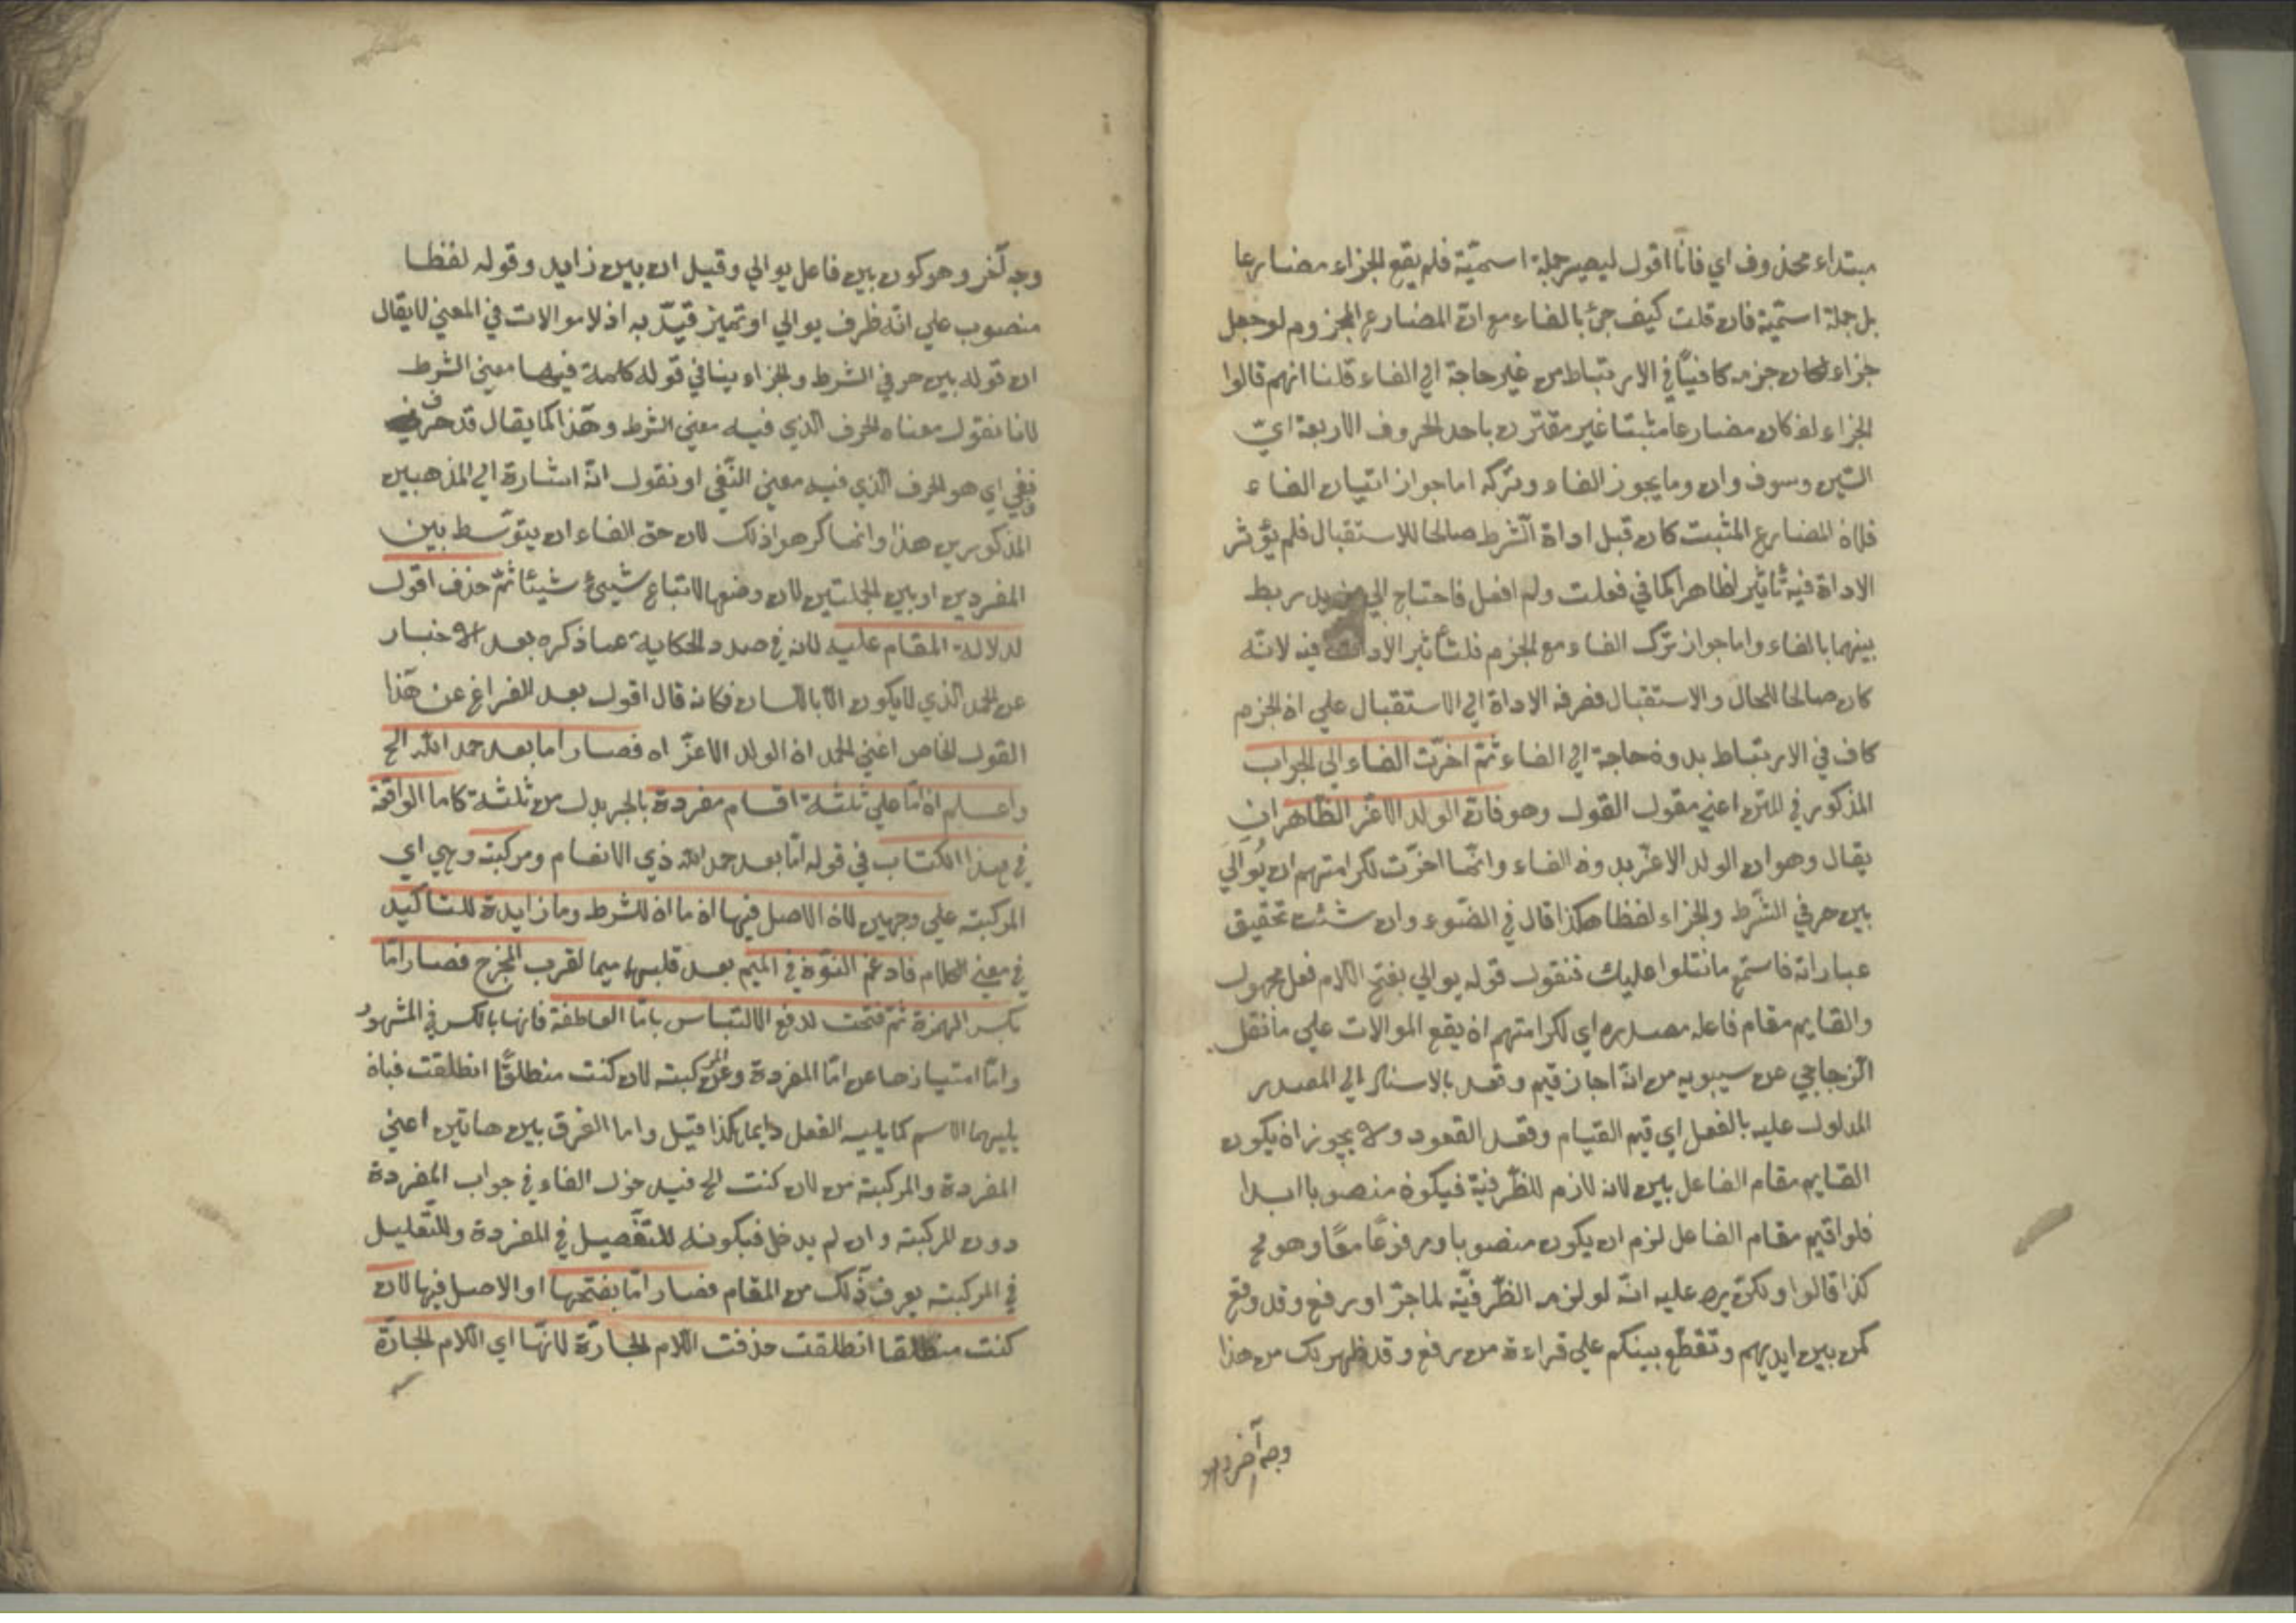 مبتداء محذوف اي فانا اقول ليصير جملة اسمیّة فلم يقع الجزاء مضارعا
بل جملة اسمیّة فان قلت كيف جئ بالفاء مع انّ المضارع المجزوم لو جعل
جزاء لكان جزمه كافيًا في الارتباط من غير حاجة الي الفاء قلنا انهم قالوا
الجزاء لو كان مضارعا مثبتا غير مقترن باحد الحروف الاربعة اي
السّين وسوف وان وما يجوز الفاء وتركه اما جواز اتيان الفاء
فلان المضارع المثبت كان قبل اداة الشّرط صالحا للاستقبال فلم يؤثر
الاداة فيه تاثيرا ظاهرا كما في فعلت ولم افعل فاحتاج الي مزيد ربط
بينهما بالفاء واما جواز ترك الفاء مع الجزم فلتأثير الاداة فيه لانّه
كان صالحا للحال والاستقبال فصرفه الاداة الي الاستقبال علي ان الجزم
كاف في الارتباط بدون حاجة الي الفاء ثمّ اخّرت الفاء الي الجواب
المذكور في المتن اعني مقول القول وهو فانّ الولد الاعز الظّاهر ان
يقال وهو ان الولد الاعزّ بدون الفاء وانّما اخّرت لكراهتهم ان يُوالي
بين حرفي الشّرط والجزاء لفظا هكذا قال في الضّوء وان شئت تحقيق
عباراته فاستمع ما نتلوا عليك فنقول قوله يوالي بفتح اللام فعل مجهول
والقايم مقام فاعله مصدره اي لكراهتهم ان يقع الموالات علي ما نقل
الزّجاجي عن سيبويه من انّه اجاز قيم وقعد بالاسناد الي المصدر
المدلول عليه بالفعل اي قيم القيام وقعد القعود ولا يجوز ان يكون
القايم مقام الفاعل بين لانه لازم للظّرفيّة فيكون منصوبا ابدا
فلو اقيم مقام الفاعل لزم ان يكون منصوبا ومرفوعًا معًا وهو مح
كذا قالوا ولكن يرد عليه انّه لو لزمه الظّرفيّة لما جرّ او رفع وقد وقع
كمن بين ايديهم وتقطّع بينكم علي قراءة من رفع وقد ظهر لك من هذا
وجه آخر وهو
وجه آخر وهو كون بين فاعل يوالي وقيل ان بين زايد وقوله لفظا
منصوب علي انّه ظرف يوالي او تميز قيّد به اذ لا موالات في المعني لا يقال
ان قوله بين حرفي الشرط والجزاء ينافي قوله كلمة فيها معني الشرط
لانا نقول معناه الحرف الذي فيه معني الشرط وهذا كما يقال قد حرف
نفي اي هو الحرف الّذي فيه معني النّفي او نقول انّه اشارة الي المذهبين
المذكورين هذا وانما كرهوا ذلك لان حق الفاء ان يتوسّط بين
المفردين او بين الجملتين لان وضعها لاتباع شيئ شيئا ثمّ حذف اقول
لدلالة المقام عليه لانه في صدد الحكاية عما ذكره بعد الاخبار
عن الحمد الّذي لا يكون الّا باللسان فكانه قال اقول بعد الفراغ عن هذا
القول الخاص اعني الحمد ان الولد الاعزّ اه فصار اما بعد حمد الله الخ
واعلم ان امّا علي ثلثة اقسام مفردة بالجر بدل من ثلثة كاما الواقعة
في هذا الكتاب في قوله امّا بعد حمد الله ذي الانعام ومركبة وهي اي
المركبة علي وجهين لان الاصل فيها ان ما ان للشرط وما زايدة للتاكيد
في معني الكلام فادغم النوّن في الميم بعد قلبها ميما لقرب المخرج فصار امّا
بكسر الهمزة ثمّ فتحت لدفع الالتباس بامّا العاطفة فانها بالكسر في المشهور
وامّا امتيازها عن امّا المفردة وعن المركبة لان كنت منطلقًا انطلقت فبان
يليهما الاسم كما يليه الفعل دايما هكذا قيل واما الفرق بين هاتين اعني
المفردة والمركبة من لان كنت الخ فبدخول الفاء في جواب المفردة
دون المركبة وان لم يدخل فبكونه للتّفصيل في المفردة وللتّعليل
في المركبة يعرف ذلك من المقام فصار امّا بفتحها او الاصل فيها لان
كنت منطلقا انطلقت حذفت اللام الجارّة لانّها اي اللام الجارّة